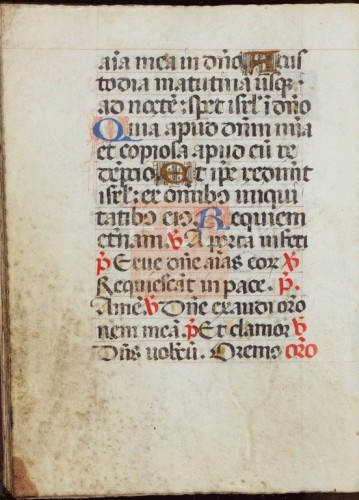 aĩa mea in dño A cus
todia matutina usq̃
ad noctẽ: spet isrl' ĩ dño
Quia apud dñm mĩa
et copiosa apud eũ re
dẽptio Et ip̃e redimet
isrl': ex omĩbo iniqui
tatibo eio Requiem
etñam. v̄ A porta inferi
p̄ Erue dñe aĩas eor v̄
Requiescant in pace. p̄.
Amẽ. v̄ Dñe exaudi oro
nem meã. p̄ Et clamor v̄
Dñs uobcũ. Oremo oro